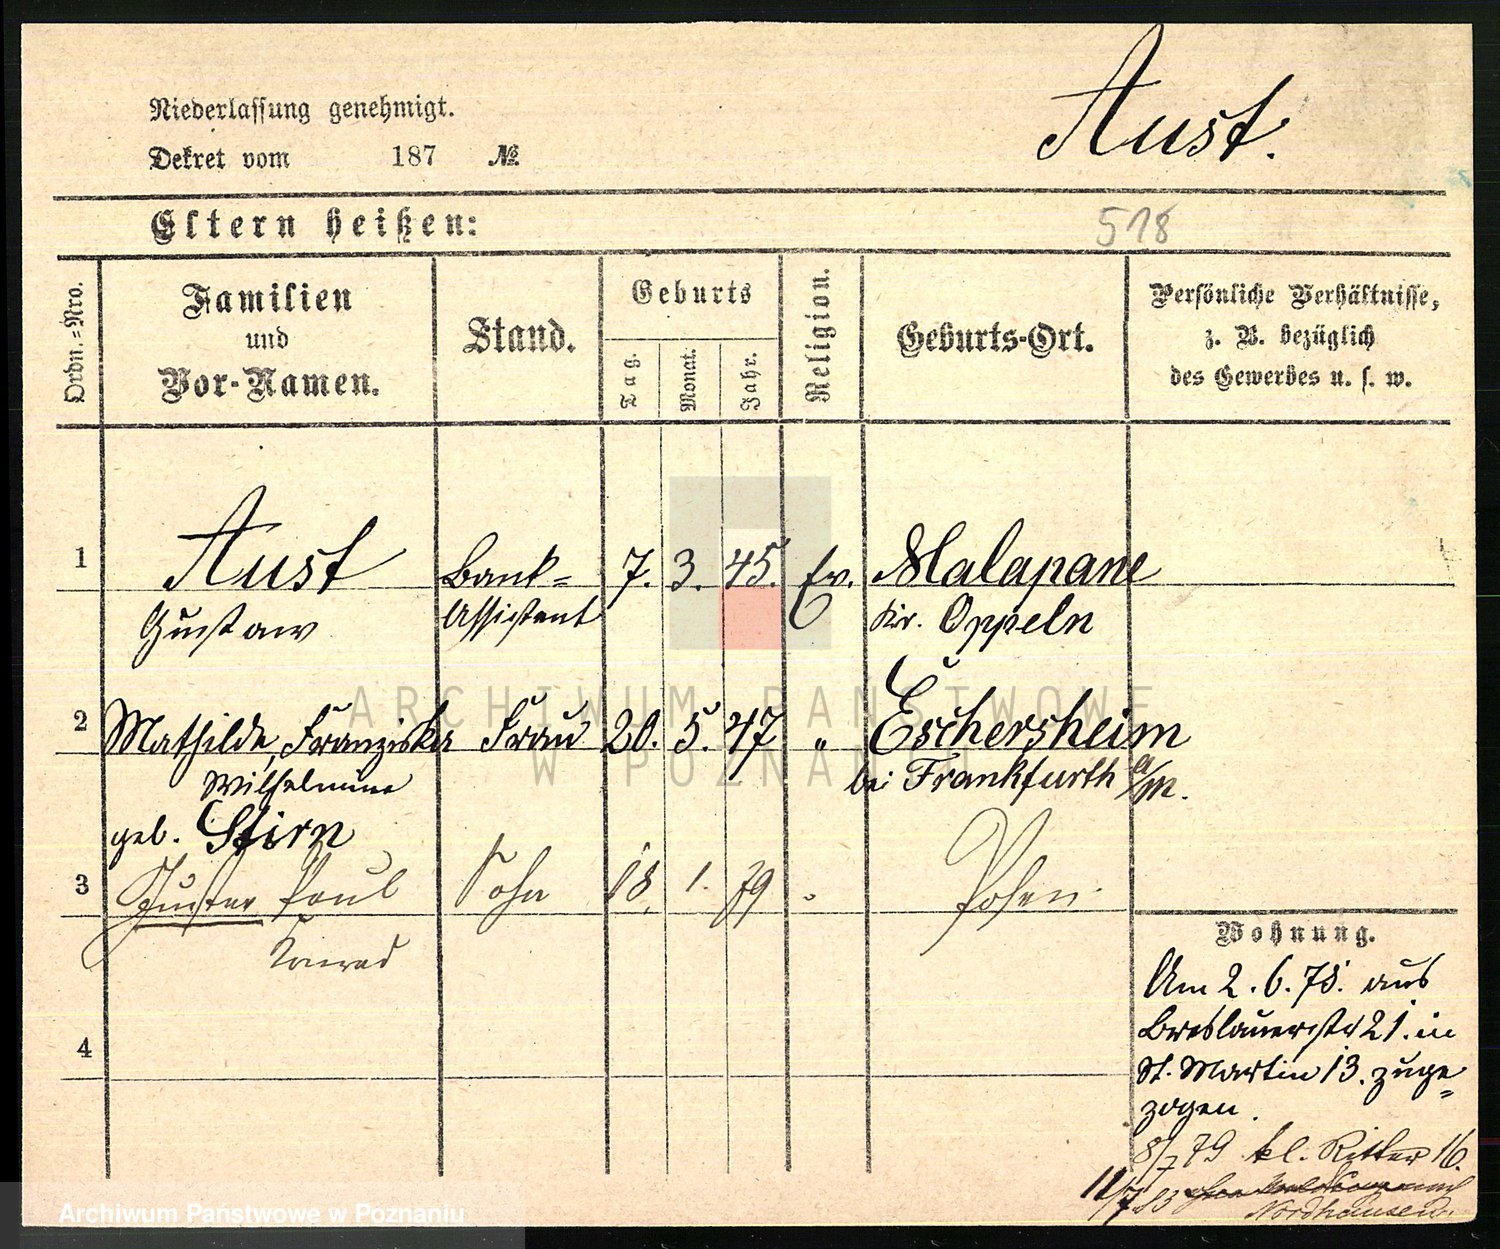 Aust.
Niederlassung genehmigt.
Dekret vom 187 №
Eltern heißen:
518
Ordn.-Nro.
Familien
und
Vor-Namen.
Stand.
Geburts
Tag.
Monat.
Jahr.
Religion.
Geburts-Ort.
Persönliche Verhältnisse,
z. B. bezüglich
des Gewerbes u. s. w.
1 Aust Bank= 7. 3. 45. Ev. Malapane
Gustaw Assistent Kr. Oppeln
2 Mathilde, Franziska Frau 20. 5. 47 " Eschersheim
Wilhelmine bei Frankfurth a/M.
geb. Stirn
3 Gustav Paul Sohn 18. 1. 79 " Posen.
Konrad
4
Wohnung.
Am 2. 6. 78. aus
Breslauerstr 21. in
St. Martin 13. zuge=
zogen.
8/7 79 kl. Ritter 16.
11/7 83 nach
Nordhausen.
ARCHIWUM PAŃSTWOWE
W POZNANIU
Archiwum Państwowe w Poznaniu